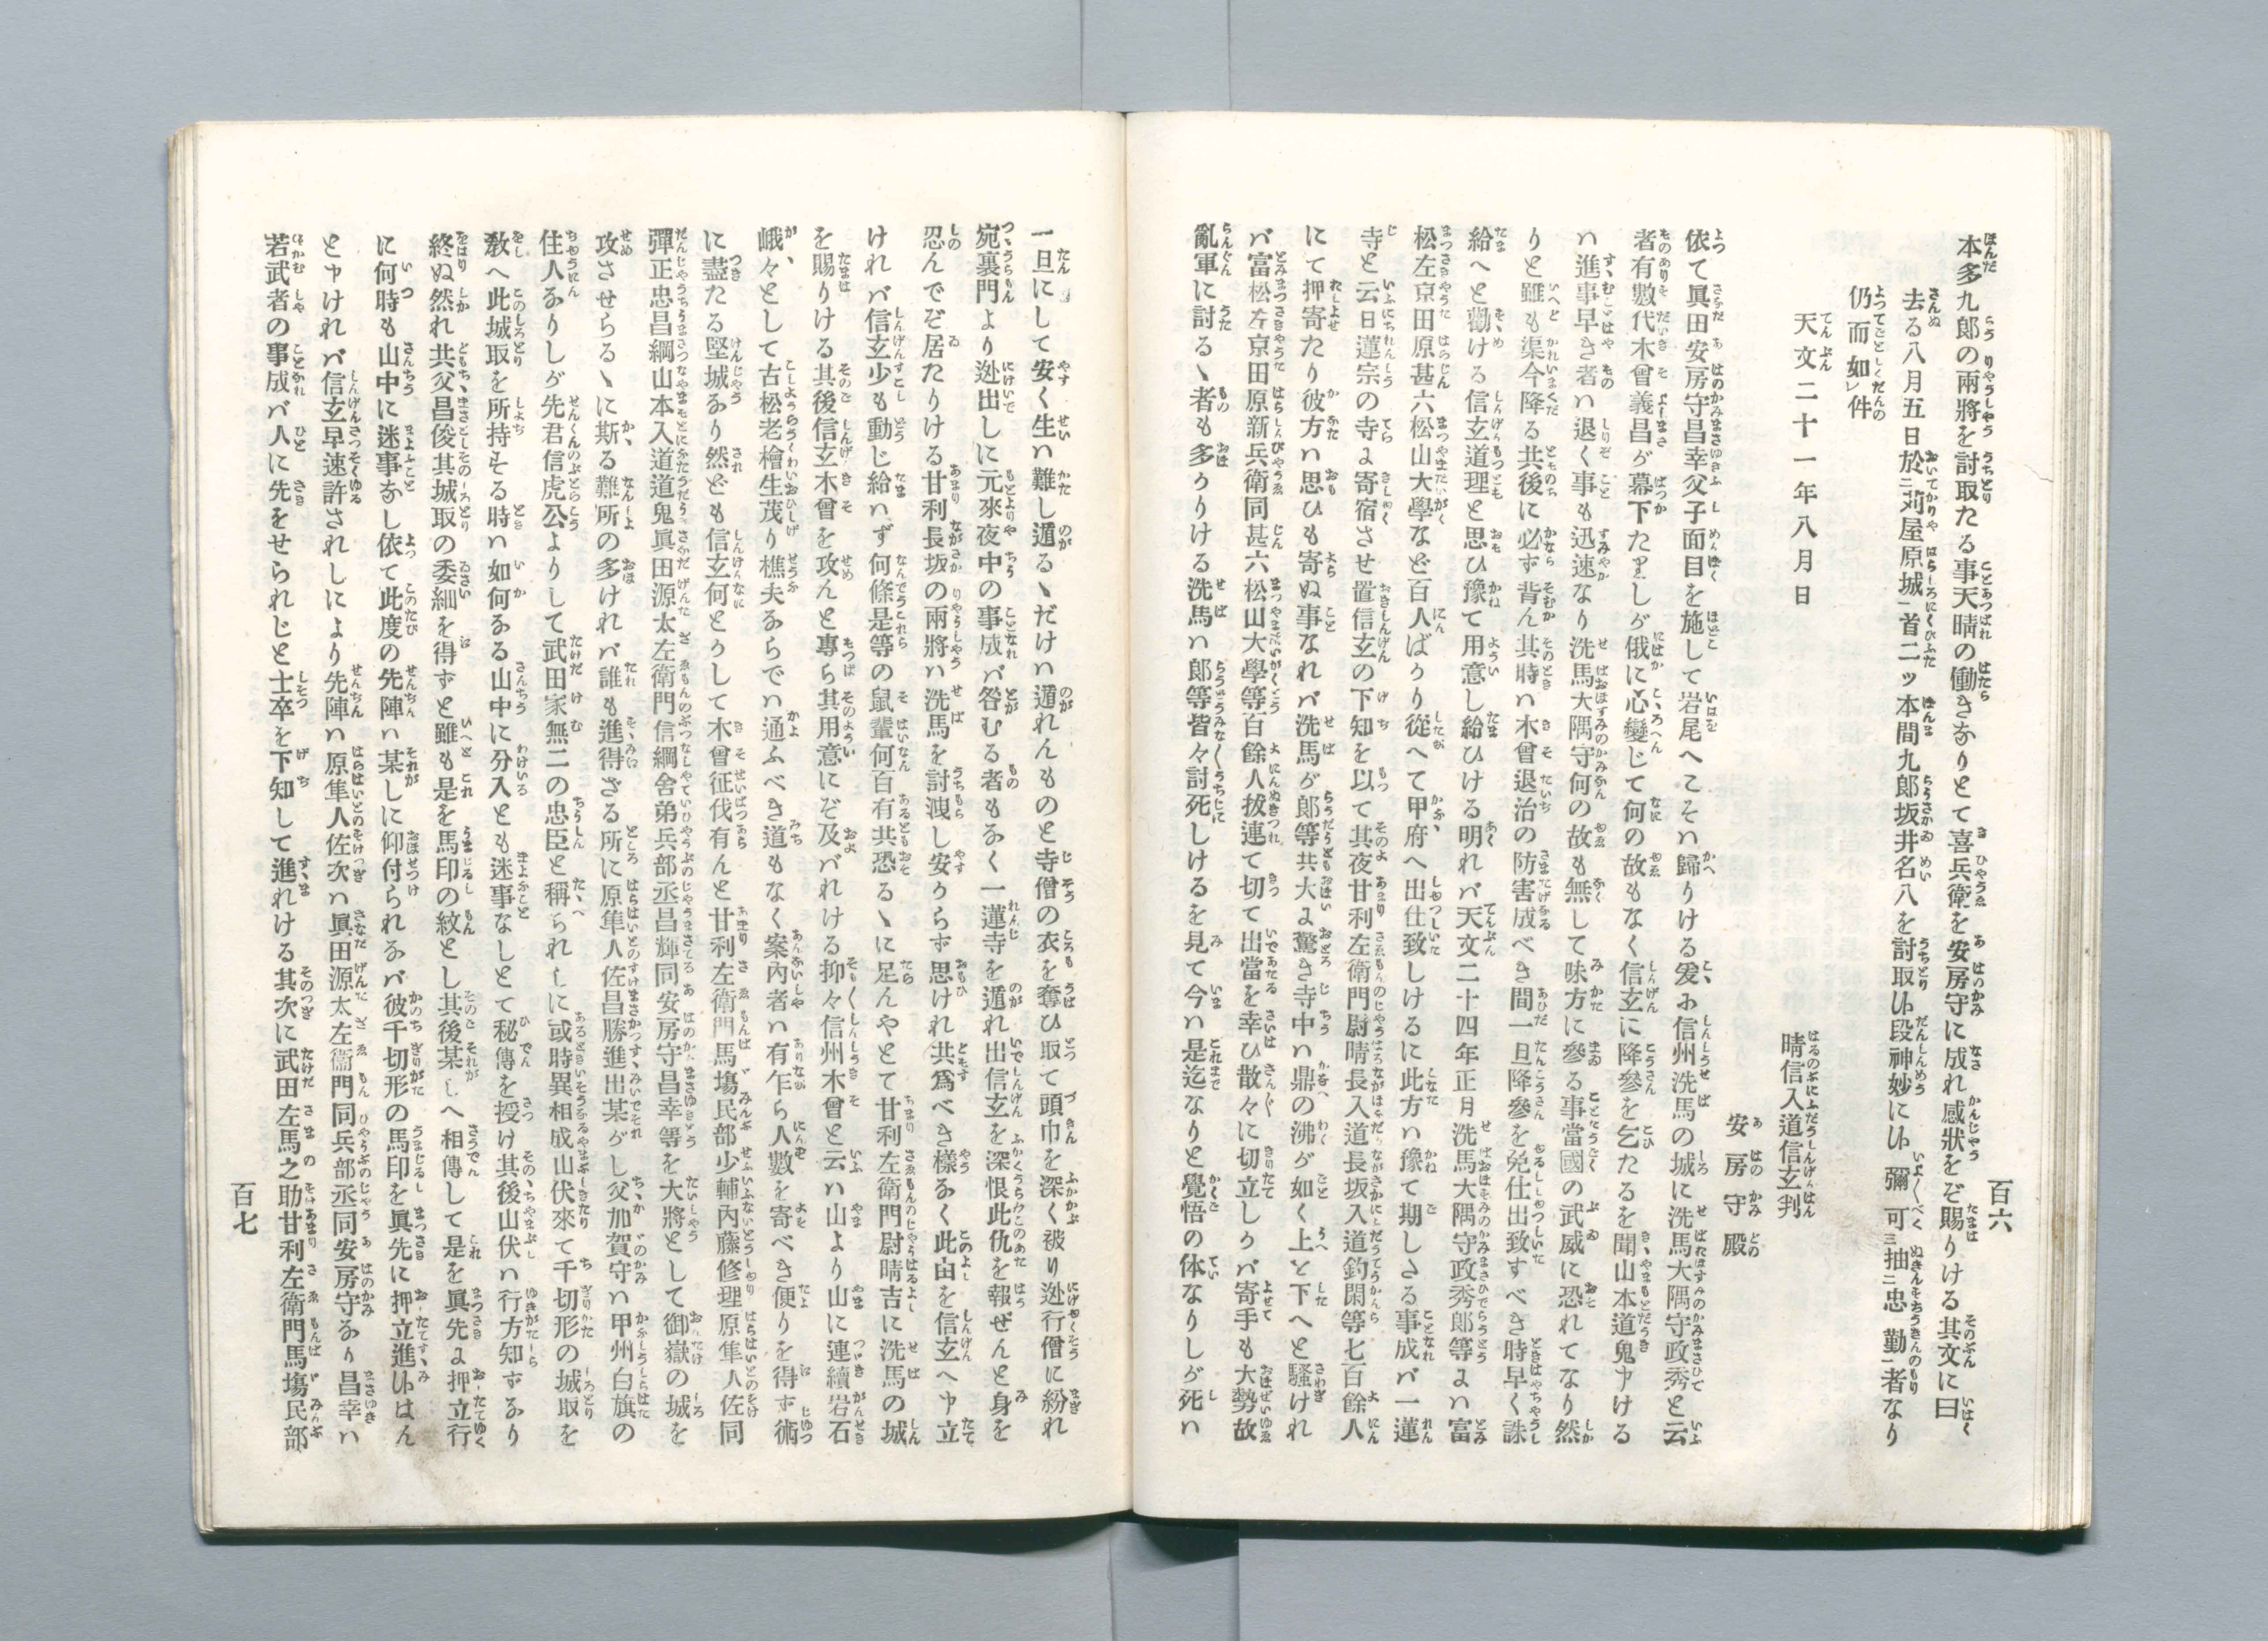 百六
本多九郎の兩將を討取たる事天晴の働きなりとて喜兵衛を安房守に成れ感狀をぞ賜りける其文に曰
去る八月五日於二苅屋原城一首二ッ本間九郎坂井名八を討取㐧段神妙に㐧彌可三抽二忠勤一者なり
仍而如レ件
天文二十一年八月日
晴信入道信玄判
安房守殿
依て眞田安房守昌幸父子面目を施して岩尾へこそハ歸りける爰に信州洗馬の城に洗馬大隅守政秀と云
者有數代木曾義昌が幕下たりしが俄に心變じて何の故もなく信玄に降參を乞たるを聞山本道鬼申ける
ハ進事早き者ハ退く事も迅速なり洗馬大隅守何の故も無して味方に參る事當國の武威に恐れてなり然
りと雖も渠今降る共後に必ず背ん其時ハ木曾退治の防害成べき間一旦降參を免仕出致すべき時早く誅
給へと勸ける信玄道理と思ひ豫て用意し給ひける明れバ天文二十四年正月洗馬大隅守政秀郎等にハ富
松左京田原甚六松山大學など百人ばかり從へて甲府へ出仕致しけるに此方ハ豫て期しさる事成バ一蓮
寺と云日蓮宗の寺に寄宿させ置信玄の下知を以て其夜甘利左衛門尉晴長入道長坂入道釣閑等七百餘人
にて押寄たり彼方ハ思ひも寄ぬ事なれバ洗馬が郎等共大に驚き寺中ハ鼎の沸が如く上と下へと騷けれ
バ富松左京田原新兵衛同甚六松山大學等百餘人拔連て切て出當を幸ひ散々に切立しかバ寄手も大勢故
亂軍に討るゝ者も多かりける洗馬ハ郎等皆々討死しけるを見て今ハ是迄なりと覺悟の体なりしが死ハ
一旦にして安く生ハ難し遁るゝだけハ遁れんものと寺僧の衣を奪ひ取て頭巾を深く被り迯行僧に紛れ
宛裏門より迯出しに元來夜中の事成バ咎むる者もなく一蓮寺を遁れ出信玄を深恨此仇を報ぜんと身を
忍んでぞ居たりける甘利長坂の兩將ハ洗馬を討洩し安からず思けれ共爲べき樣なく此由を信玄へ申立
けれバ信玄少も動じ給ハず何條是等の鼠輩何百有共恐るゝに足んやとて甘利左衛門尉晴吉に洗馬の城
を賜りける其後信玄木曾を攻んと專ら其用意にぞ及バれける抑々信州木曾と云ハ山より山に連續岩石
峨々として古松老檜生茂り樵夫ならでハ通ふべき道もなく案內者ハ有乍ら人數を寄べき便りを得ず術
に盡たる堅城なり然ども信玄何とかして木曾征伐有んと甘利左衛門馬塲民部少輔內藤修理原隼人佐同
彈正忠昌綱山本入道道鬼眞田源太左衛門信綱舍弟兵部丞昌輝同安房守昌幸等を大將として御嶽の城を
攻させらるゝに斯る難所の多けれバ誰も進得ざる所に原隼人佐昌勝進出某がし父加賀守ハ甲州白旗の
住人なりしが先君信虎公よりして武田家無二の忠臣と稱られしに或時異相成山伏來て千切形の城取を
敎へ此城取を所持する時ハ如何なる山中に分入とも迷事なしとて秘傳を授け其後山伏ハ行方知ずなり
終ぬ然れ共父昌俊其城取の委細を得ずと雖も是を馬印の紋とし其後某しへ相傳して是を眞先に押立行
に何時も山中に迷事なし依て此度の先陣ハ某しに仰付られなバ彼千切形の馬印を眞先に押立進㐧はん
と申けれバ信玄早速許されしにより先陣ハ原隼人佐次ハ眞田源太左衞門同兵部丞同安房守なり昌幸ハ
若武者の事成バ人に先をせられじと士卒を下知して進れける其次に武田左馬之助甘利左衛門馬塲民部
百七